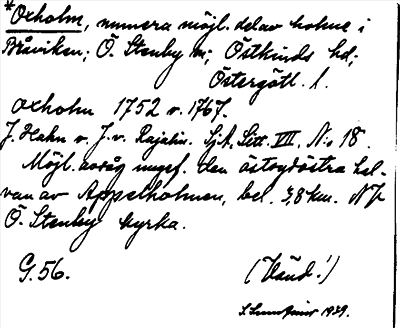 *Oxholm, numera möjl. del av holme i
Bråviken; Ö. Stenby sn; Östkinds hd;
Östergötl. l.
Oxholm 1752 v. 1767.
J. Hahn v. J. v. Rajalin. Sj.A. Litt. VII, No 18.
Möjl. avsåg ungef. den östsydöstra hal-
van av Äppelholmen, bel. 3,8 km. N
Ö. Stenby kyrka.
G. 56.
(Vänd!)
1929.